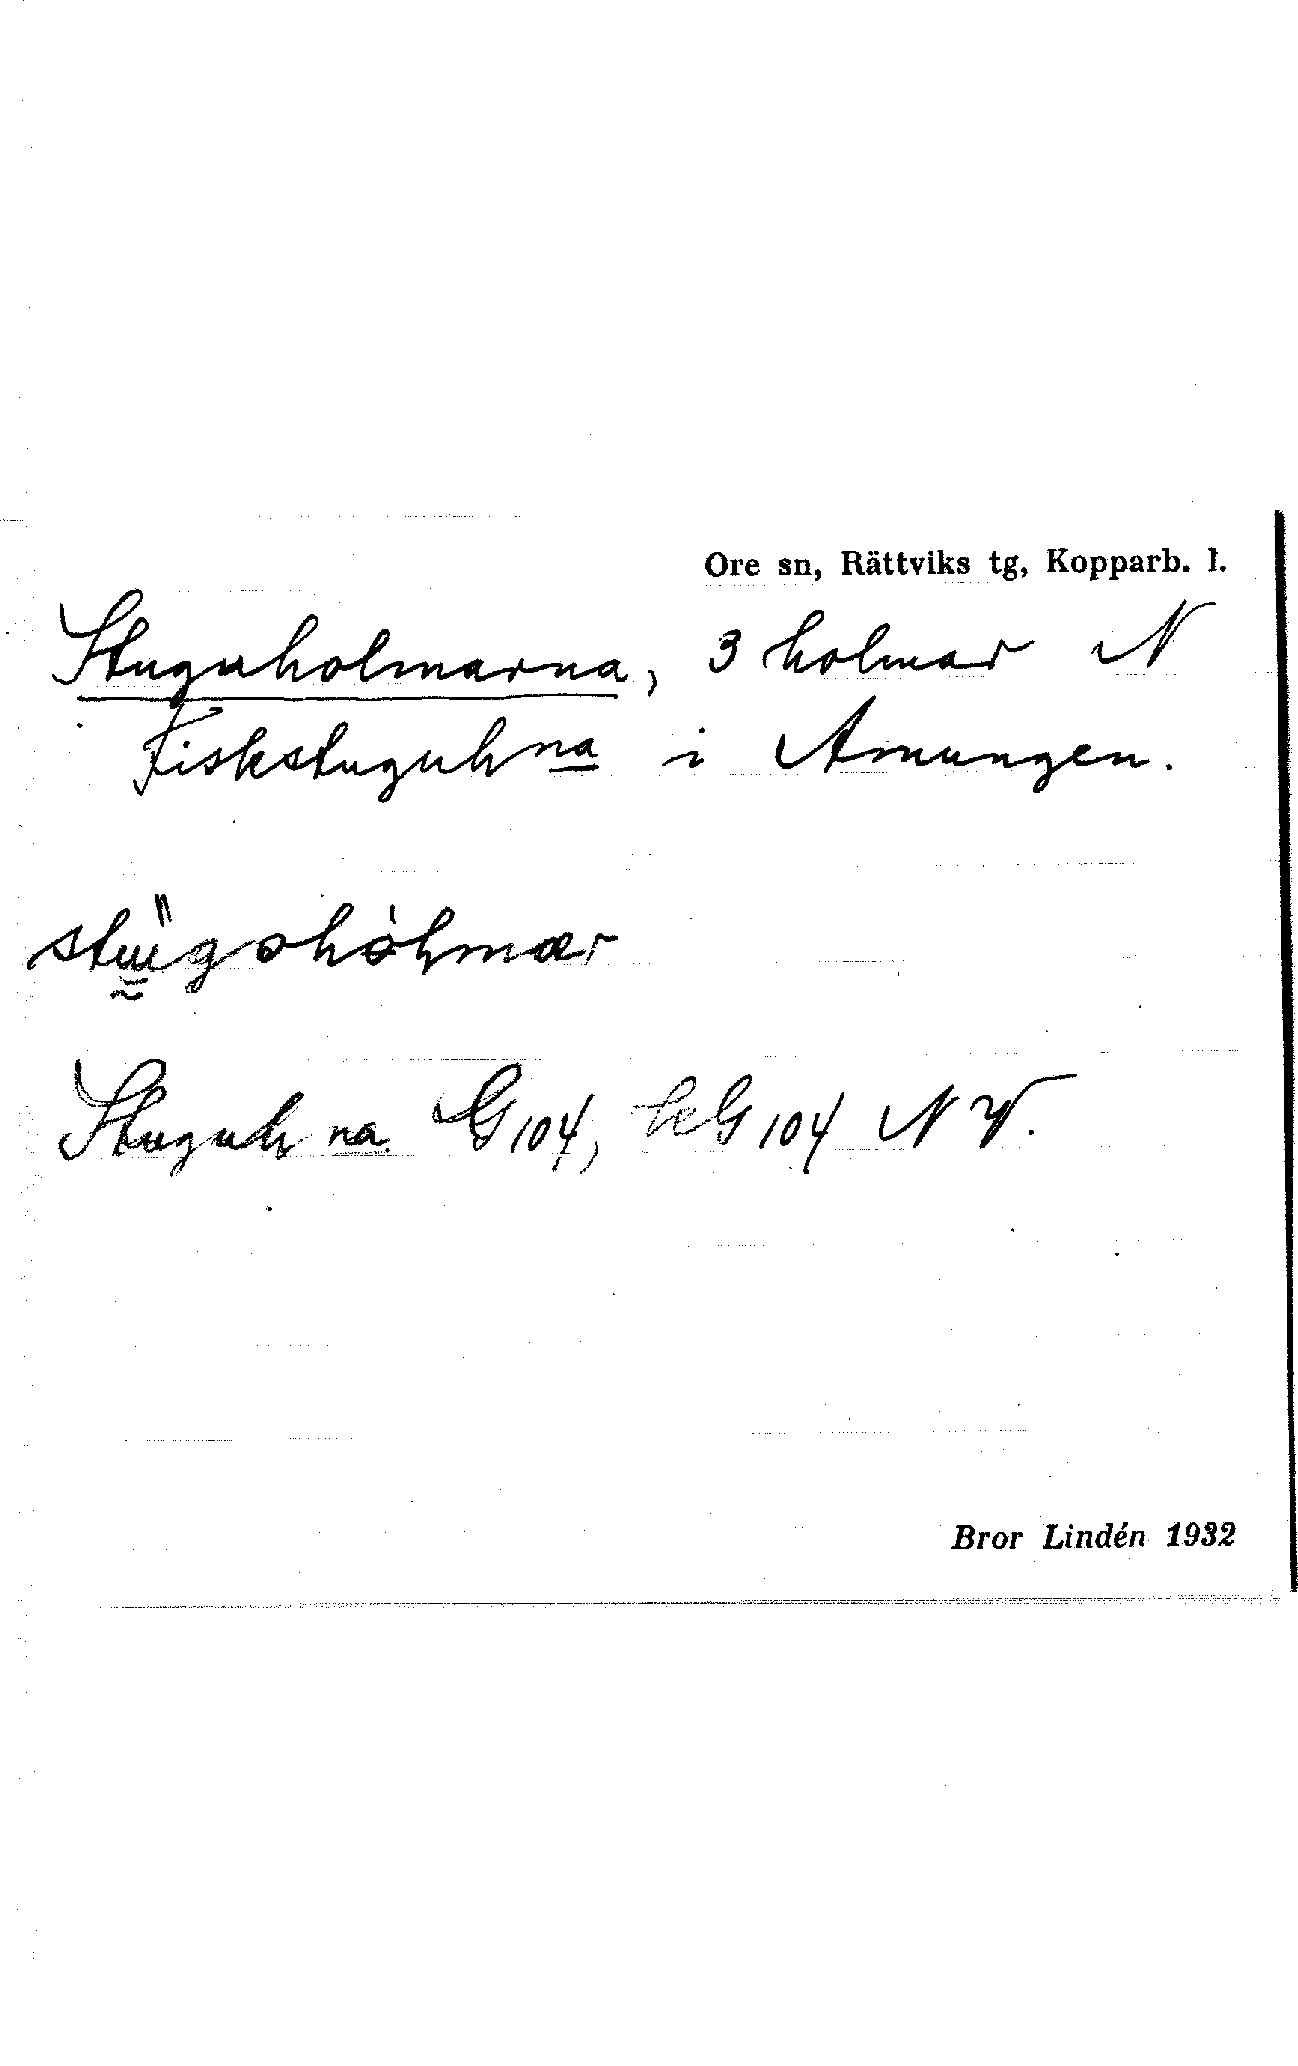 Ore sn, Rättviks tg, Kopparb. l.
Stuguholmarna, 3 holmar N
Fiskstuguhna i Amungen.
Stuguh na G 104, G 104 N V.
Bror Lindén 1932